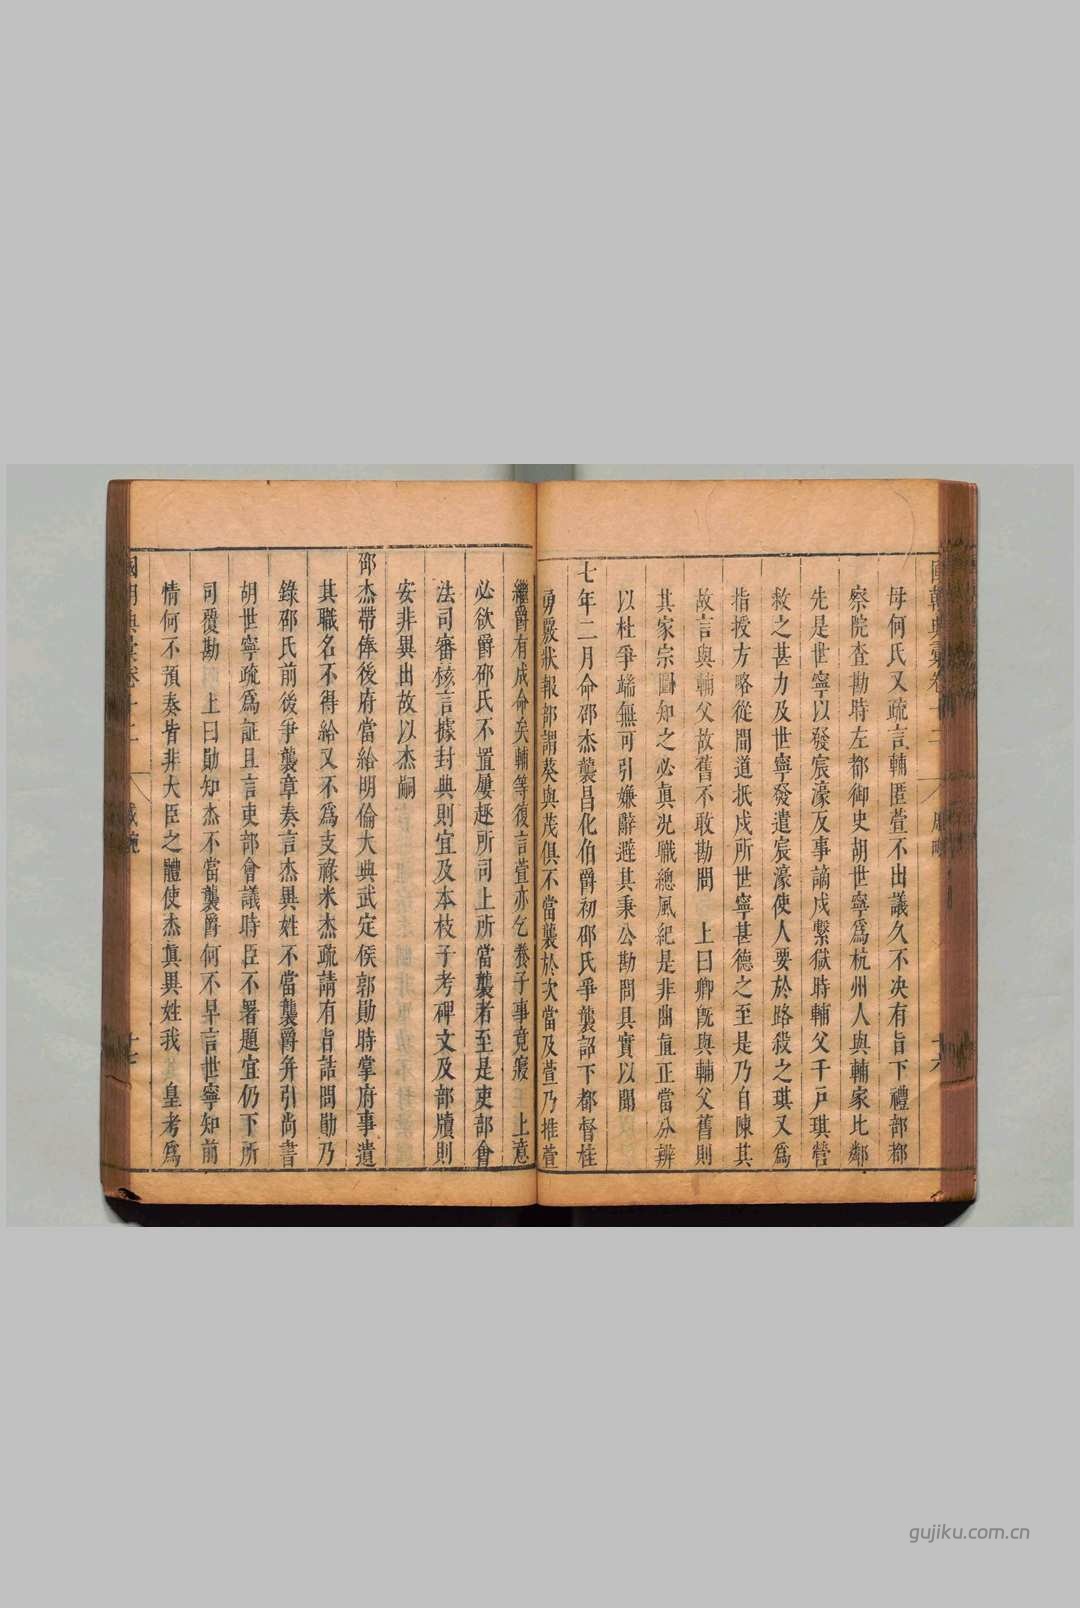 國朝典彙卷十二
十六
母何氏又疏言輔匿萱不出議久不決有旨下禮部都
察院查勘時左都御史胡世寧爲杭州人與輔家比鄰
先是世寧以發宸濠反事謫戍繫獄時輔父千戶琪營
救之甚力及世寧發遣宸濠使人要於路殺之琪又爲
指授方略從間道抵戍所世寧甚德之至是乃自陳其
故言與輔父故舊不敢勘問 上曰卿旣與輔父舊則
其家宗圖知之必真况職總風紀是非曲直正當分辨
以杜爭端無可引嫌辭避其秉公勘問具實以聞
七年二月命邵杰襲昌化伯爵初邵氏爭襲詔下都督桂
勇覈狀報部謂葵與茂俱不當襲於次當及萱乃推萱
繼爵有成命矣輔等復言萱亦乞養子事竟寢 上意
必欲爵邵氏不置屢趣所司上所當襲者至是吏部會
法司審核言據封典則宜及本枝子考碑文及部牘則
安非異出故以杰嗣
邵杰帶俸後府當給明倫大典武定侯郭勛時掌府事遺
其職名不得給又不爲支祿米杰疏請有旨詰問勛乃
錄邵氏前後爭襲章奏言杰異姓不當襲爵并引尚書
胡世寧疏爲証且言吏部會議時臣不署題宜仍下所
司覆勘 上曰勛知杰不當襲爵何不早言世寧知前
情何不預奏皆非大臣之體使杰真異姓我 皇考爲
國朝典彙卷十二
戚畹
十七
gujiku.com.cn